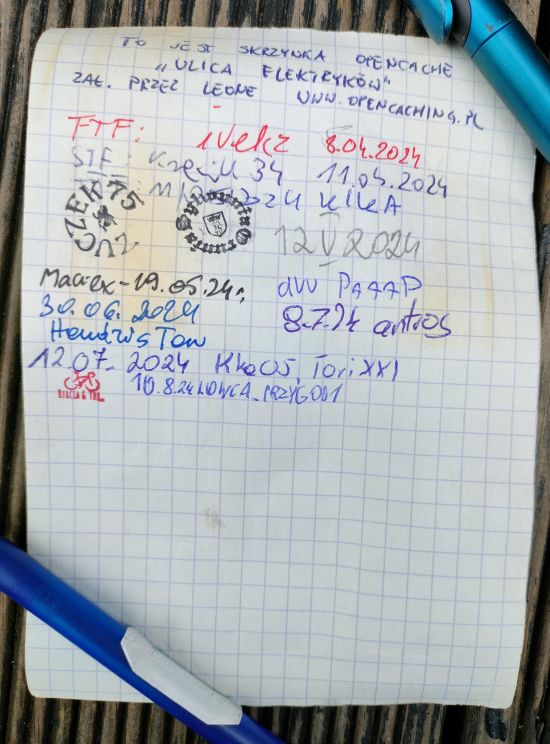 TO JEST SKRZYNKA OPENCACHE
„ULICA ELEKTRYKÓW"
ZAŁ. PRZEZ LEONE WWW.OPENCACHING.PL
FTF: iVekz 8.04.2024
STF: 34 11.04.2024
KIKA
ŁUCZEK75
12 V 2024
Maciek-19.05.24r. dvv PAAAP
30.06.2024 8.7.24 antros
HendrisTow
12.07. 2024 Khaos, Tori XXI
10.8.24 ŁOWCA_PRZYGOD1